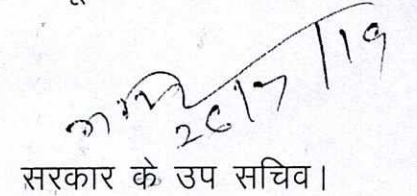 26/7/19
सरकार के उप सचिव।